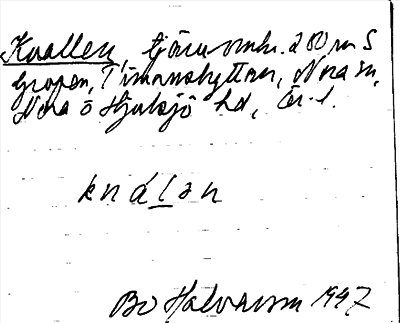 Knallen, tjärn omkr. 200 m S
Gropen, Timanshyttan, Nora sn,
Nora o Hjulsjö hd, Ör. l.
knálan
Bo Halvarson 1947